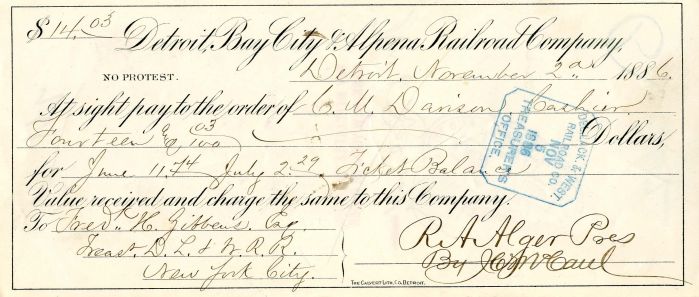 $14.03
Detroit, Bay City & Alpena Railroad Company,
NO PROTEST. Detroit, November 2nd 1886.
At sight pay to the order of C. M. Davison Cashier
Fourteen & 03/100 Dollars,
for June 11.74 July 2.29. Ticket Balance
Value received and charge the same to this Company.
To Fred. H. Gibbens, Esq.
Treast. D. L. & W. R. R.
New York City.
R. A. Alger Pres
By J. C. McCaul
DEL. LACK. & WEST.
RAILROAD CO.
NOV
5
1886
TREASURER'S
OFFICE.
THE CALVERT LITH. CO. DETROIT.